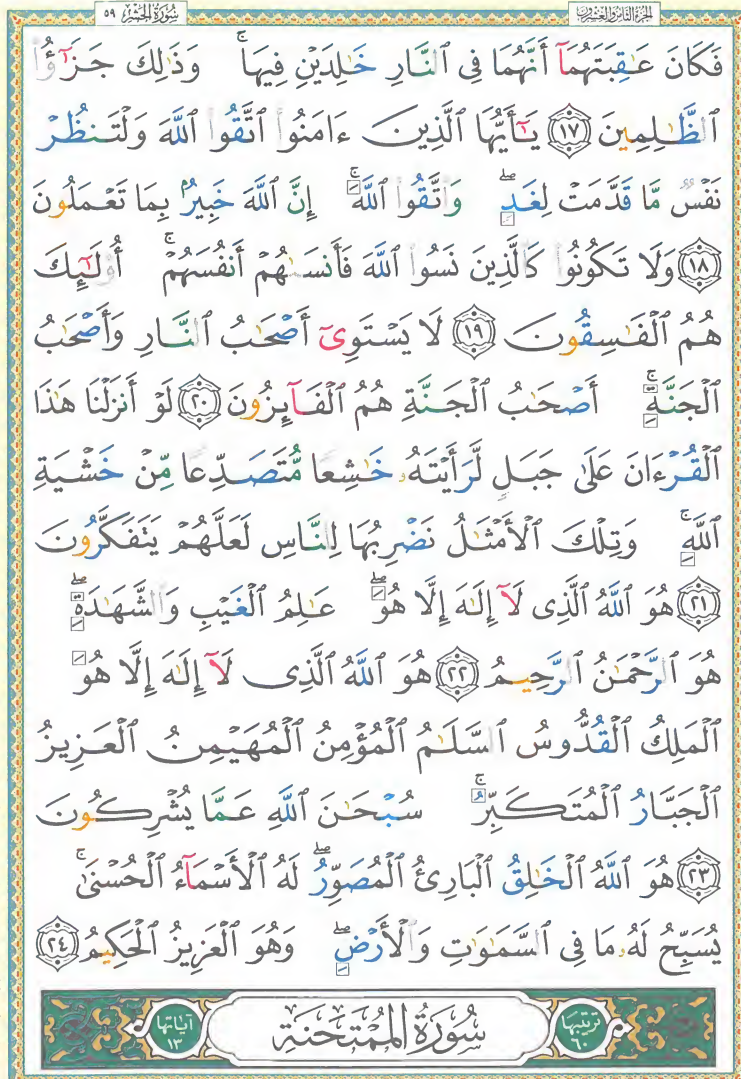 الجزء الثامن والعشرون سورة الحشر ٥٩
فَكَانَ عَٰقِبَتَهُمَآ أَنَّهُمَا فِى ٱلنَّارِ خَٰلِدَيْنِ فِيهَا ۚ وَذَٰلِكَ جَزَٰٓؤُا۟
ٱلظَّٰلِمِينَ ﴿١٧﴾ يَٰٓأَيُّهَا ٱلَّذِينَ ءَامَنُوا۟ ٱتَّقُوا۟ ٱللَّهَ وَلْتَنظُرْ
نَفْسٌ مَّا قَدَّمَتْ لِغَدٍ ۖ وَٱتَّقُوا۟ ٱللَّهَ ۚ إِنَّ ٱللَّهَ خَبِيرٌۢ بِمَا تَعْمَلُونَ
﴿١٨﴾ وَلَا تَكُونُوا۟ كَٱلَّذِينَ نَسُوا۟ ٱللَّهَ فَأَنسَىٰهُمْ أَنفُسَهُمْ ۚ أُو۟لَٰٓئِكَ
هُمُ ٱلْفَٰسِقُونَ ﴿١٩﴾ لَا يَسْتَوِىٓ أَصْحَٰبُ ٱلنَّارِ وَأَصْحَٰبُ
ٱلْجَنَّةِ ۚ أَصْحَٰبُ ٱلْجَنَّةِ هُمُ ٱلْفَآئِزُونَ ﴿٢٠﴾ لَوْ أَنزَلْنَا هَٰذَا
ٱلْقُرْءَانَ عَلَىٰ جَبَلٍ لَّرَأَيْتَهُۥ خَٰشِعًا مُّتَصَدِّعًا مِّنْ خَشْيَةِ
ٱللَّهِ ۚ وَتِلْكَ ٱلْأَمْثَٰلُ نَضْرِبُهَا لِلنَّاسِ لَعَلَّهُمْ يَتَفَكَّرُونَ
﴿٢١﴾ هُوَ ٱللَّهُ ٱلَّذِى لَآ إِلَٰهَ إِلَّا هُوَ ۖ عَٰلِمُ ٱلْغَيْبِ وَٱلشَّهَٰدَةِ ۖ
هُوَ ٱلرَّحْمَٰنُ ٱلرَّحِيمُ ﴿٢٢﴾ هُوَ ٱللَّهُ ٱلَّذِى لَآ إِلَٰهَ إِلَّا هُوَ
ٱلْمَلِكُ ٱلْقُدُّوسُ ٱلسَّلَٰمُ ٱلْمُؤْمِنُ ٱلْمُهَيْمِنُ ٱلْعَزِيزُ
ٱلْجَبَّارُ ٱلْمُتَكَبِّرُ ۚ سُبْحَٰنَ ٱللَّهِ عَمَّا يُشْرِكُونَ
﴿٢٣﴾ هُوَ ٱللَّهُ ٱلْخَٰلِقُ ٱلْبَارِئُ ٱلْمُصَوِّرُ ۖ لَهُ ٱلْأَسْمَآءُ ٱلْحُسْنَىٰ ۚ
يُسَبِّحُ لَهُۥ مَا فِى ٱلسَّمَٰوَٰتِ وَٱلْأَرْضِ ۖ وَهُوَ ٱلْعَزِيزُ ٱلْحَكِيمُ ﴿٢٤﴾
ترتيبها ٦٠ سورة الممتحنة آياتها ١٣